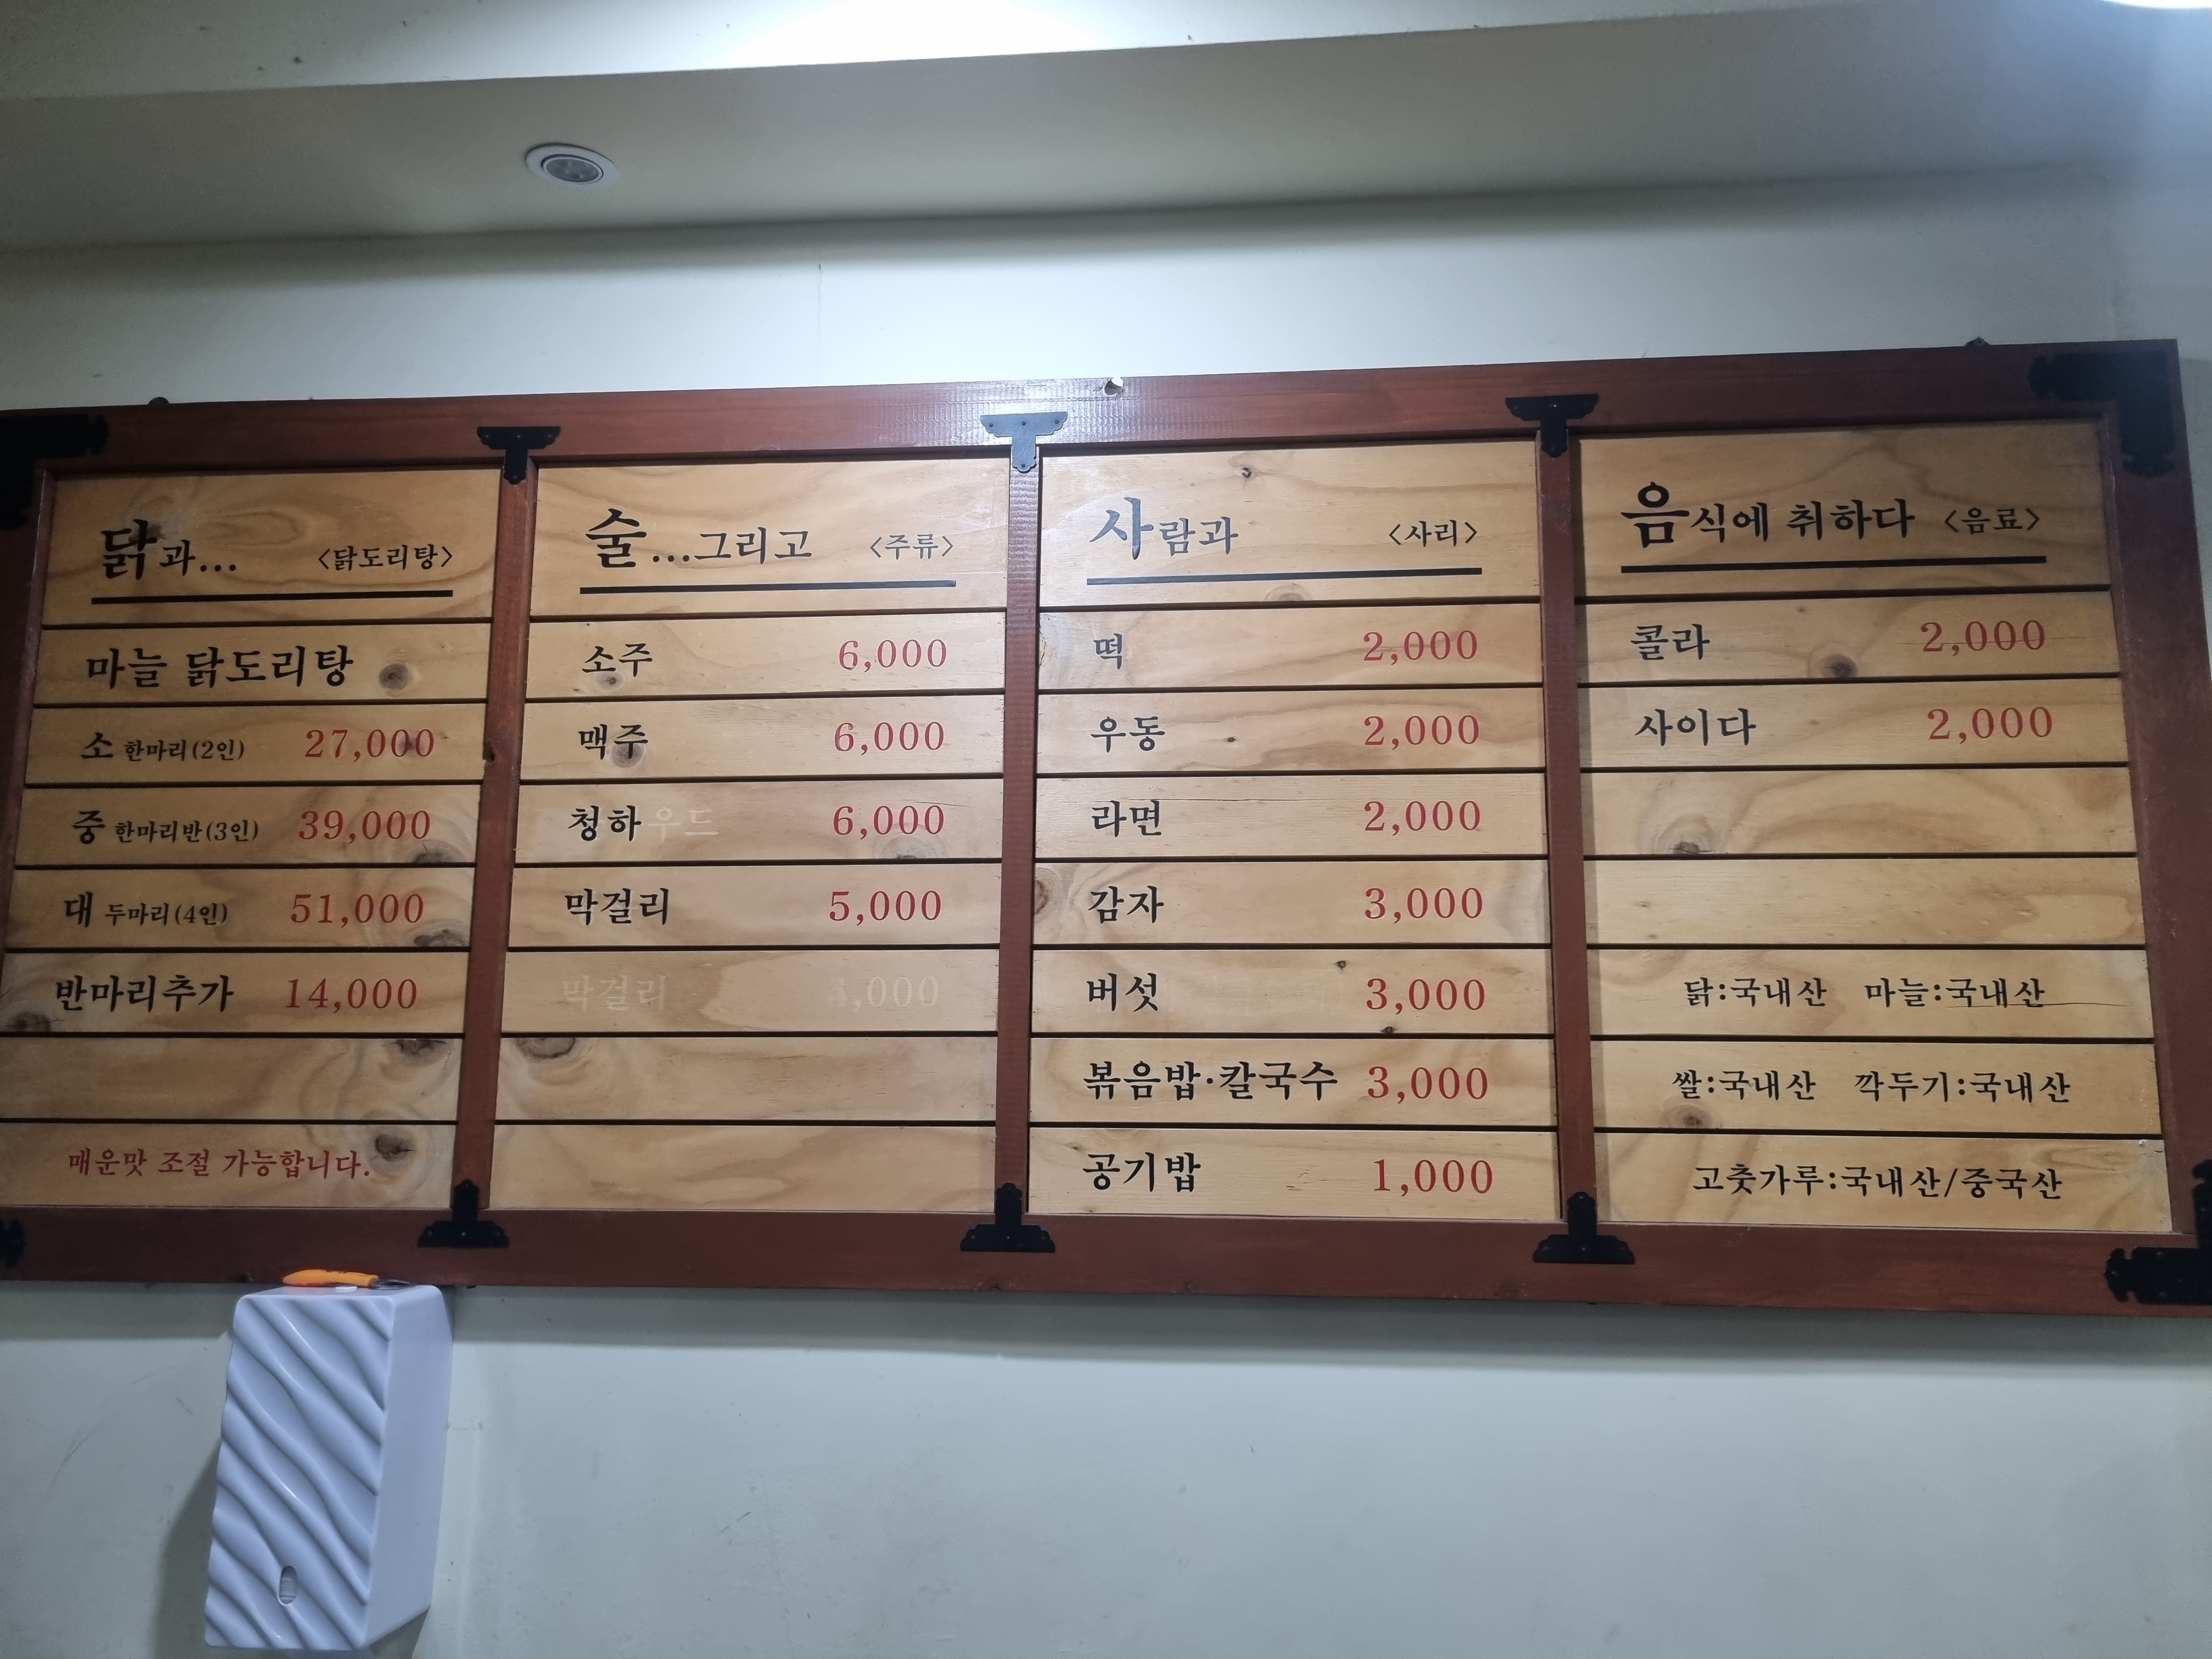 닭과... <닭도리탕>
마늘 닭도리탕
소 한마리(2인) 27,000
중 한마리반(3인) 39,000
대 두마리(4인) 51,000
반마리추가 14,000
매운맛 조절 가능합니다.
술...그리고 <주류>
소주 6,000
맥주 6,000
청하우드 6,000
막걸리 5,000
막걸리 ,000
사람과 <사리>
떡 2,000
우동 2,000
라면 2,000
감자 3,000
버섯 3,000
볶음밥·칼국수 3,000
공기밥 1,000
음식에 취하다 <음료>
콜라 2,000
사이다 2,000
닭:국내산 마늘:국내산
쌀:국내산 깍두기:국내산
고춧가루:국내산/중국산